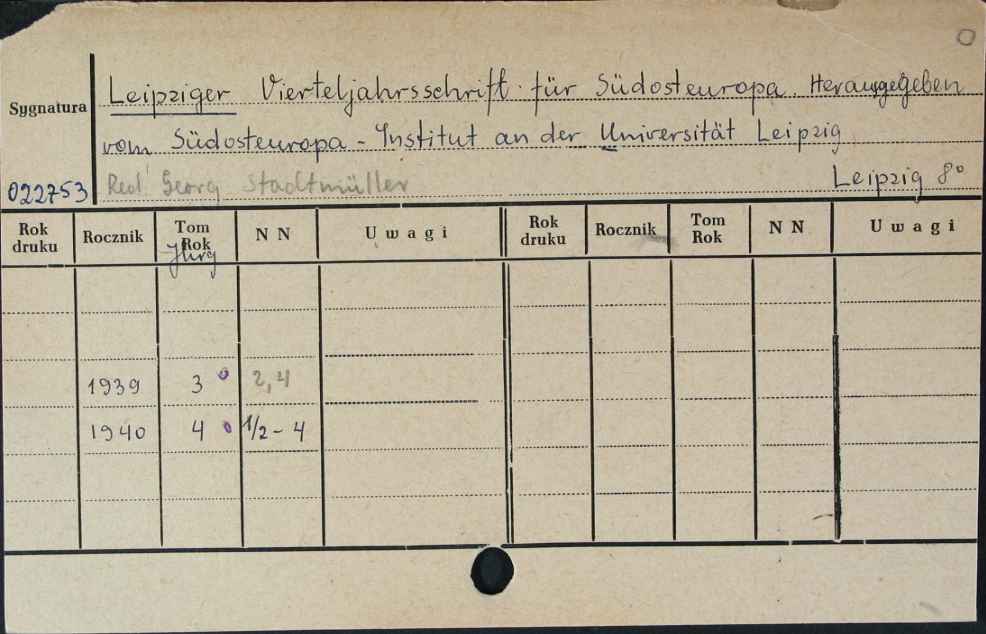 Leipziger Vierteljahrsschrift für Südosteuropa. Herausgegeben
Sygnatura
vom Südosteuropa-Institut an der Universität Leipzig
022753 Red. Georg Stadtmüller Leipzig 8°
Rok druku Rocznik Tom Rok NN Uwagi Rok druku Rocznik Tom Rok NN Uwagi
Jhrg
1939 3 2,4
1940 4 1/2-4